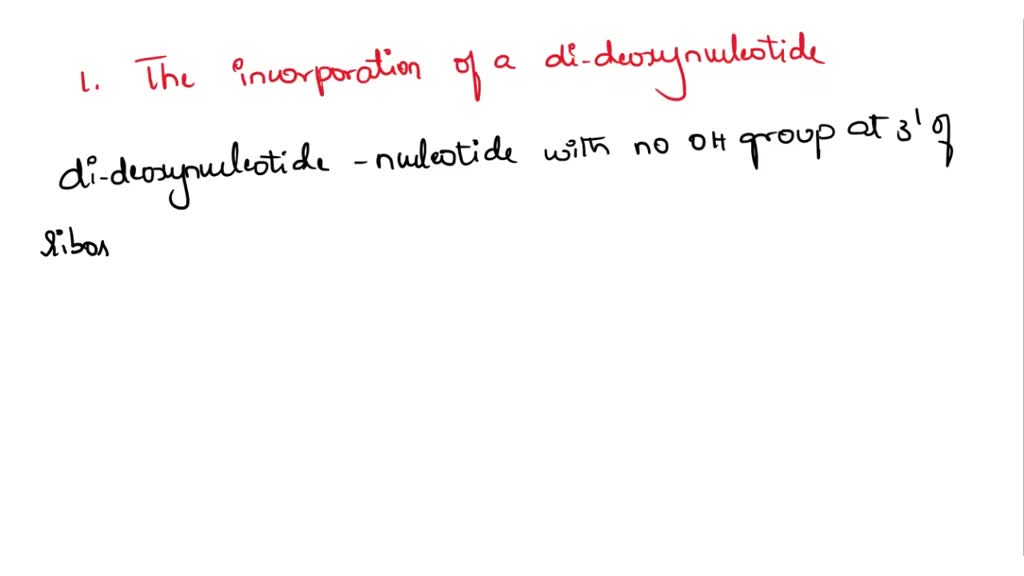 1. The incorporation of a di-deoxynucleotide
di-deoxynucleotide - nucleotide with no OH group at 3' of
ribos